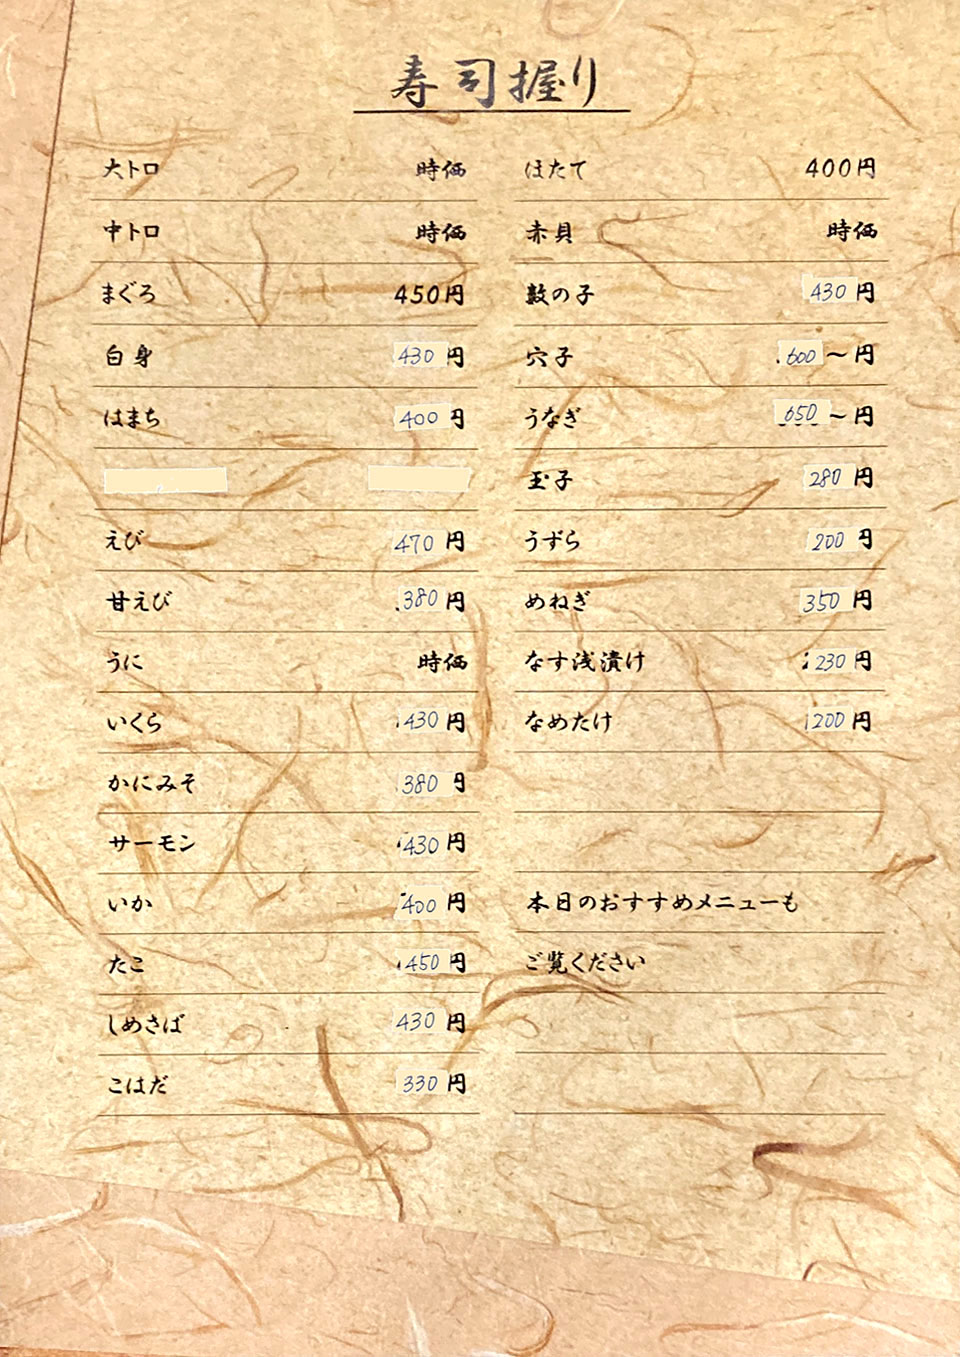 寿司握り
大トロ 時価
中トロ 時価
まぐろ 450円
白身 430円
はまち 400円
えび 470円
甘えび 380円
うに 時価
いくら 430円
かにみそ 380円
サーモン 430円
いか 400円
たこ 450円
しめさば 430円
こはだ 330円
ほたて 400円
赤貝 時価
数の子 430円
穴子 600〜円
うなぎ 650〜円
玉子 280円
うずら 200円
めねぎ 350円
なす浅漬け 230円
なめたけ 200円
本日のおすすめメニューも
ご覧ください